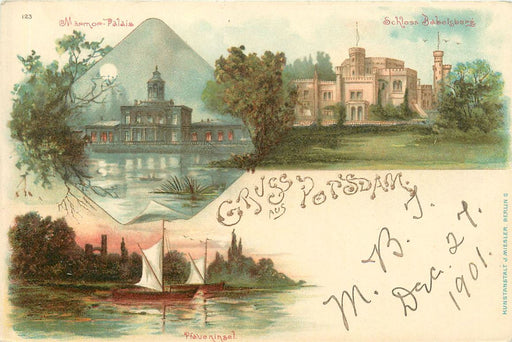 123
Marmor-Palais
Schloss Babelsberg
Gruss
aus
Potsdam.
M. B. J.
Dec. 27.
1901.
Pfaueninsel
KUNSTANSTALT J. MIESLER, BERLIN S